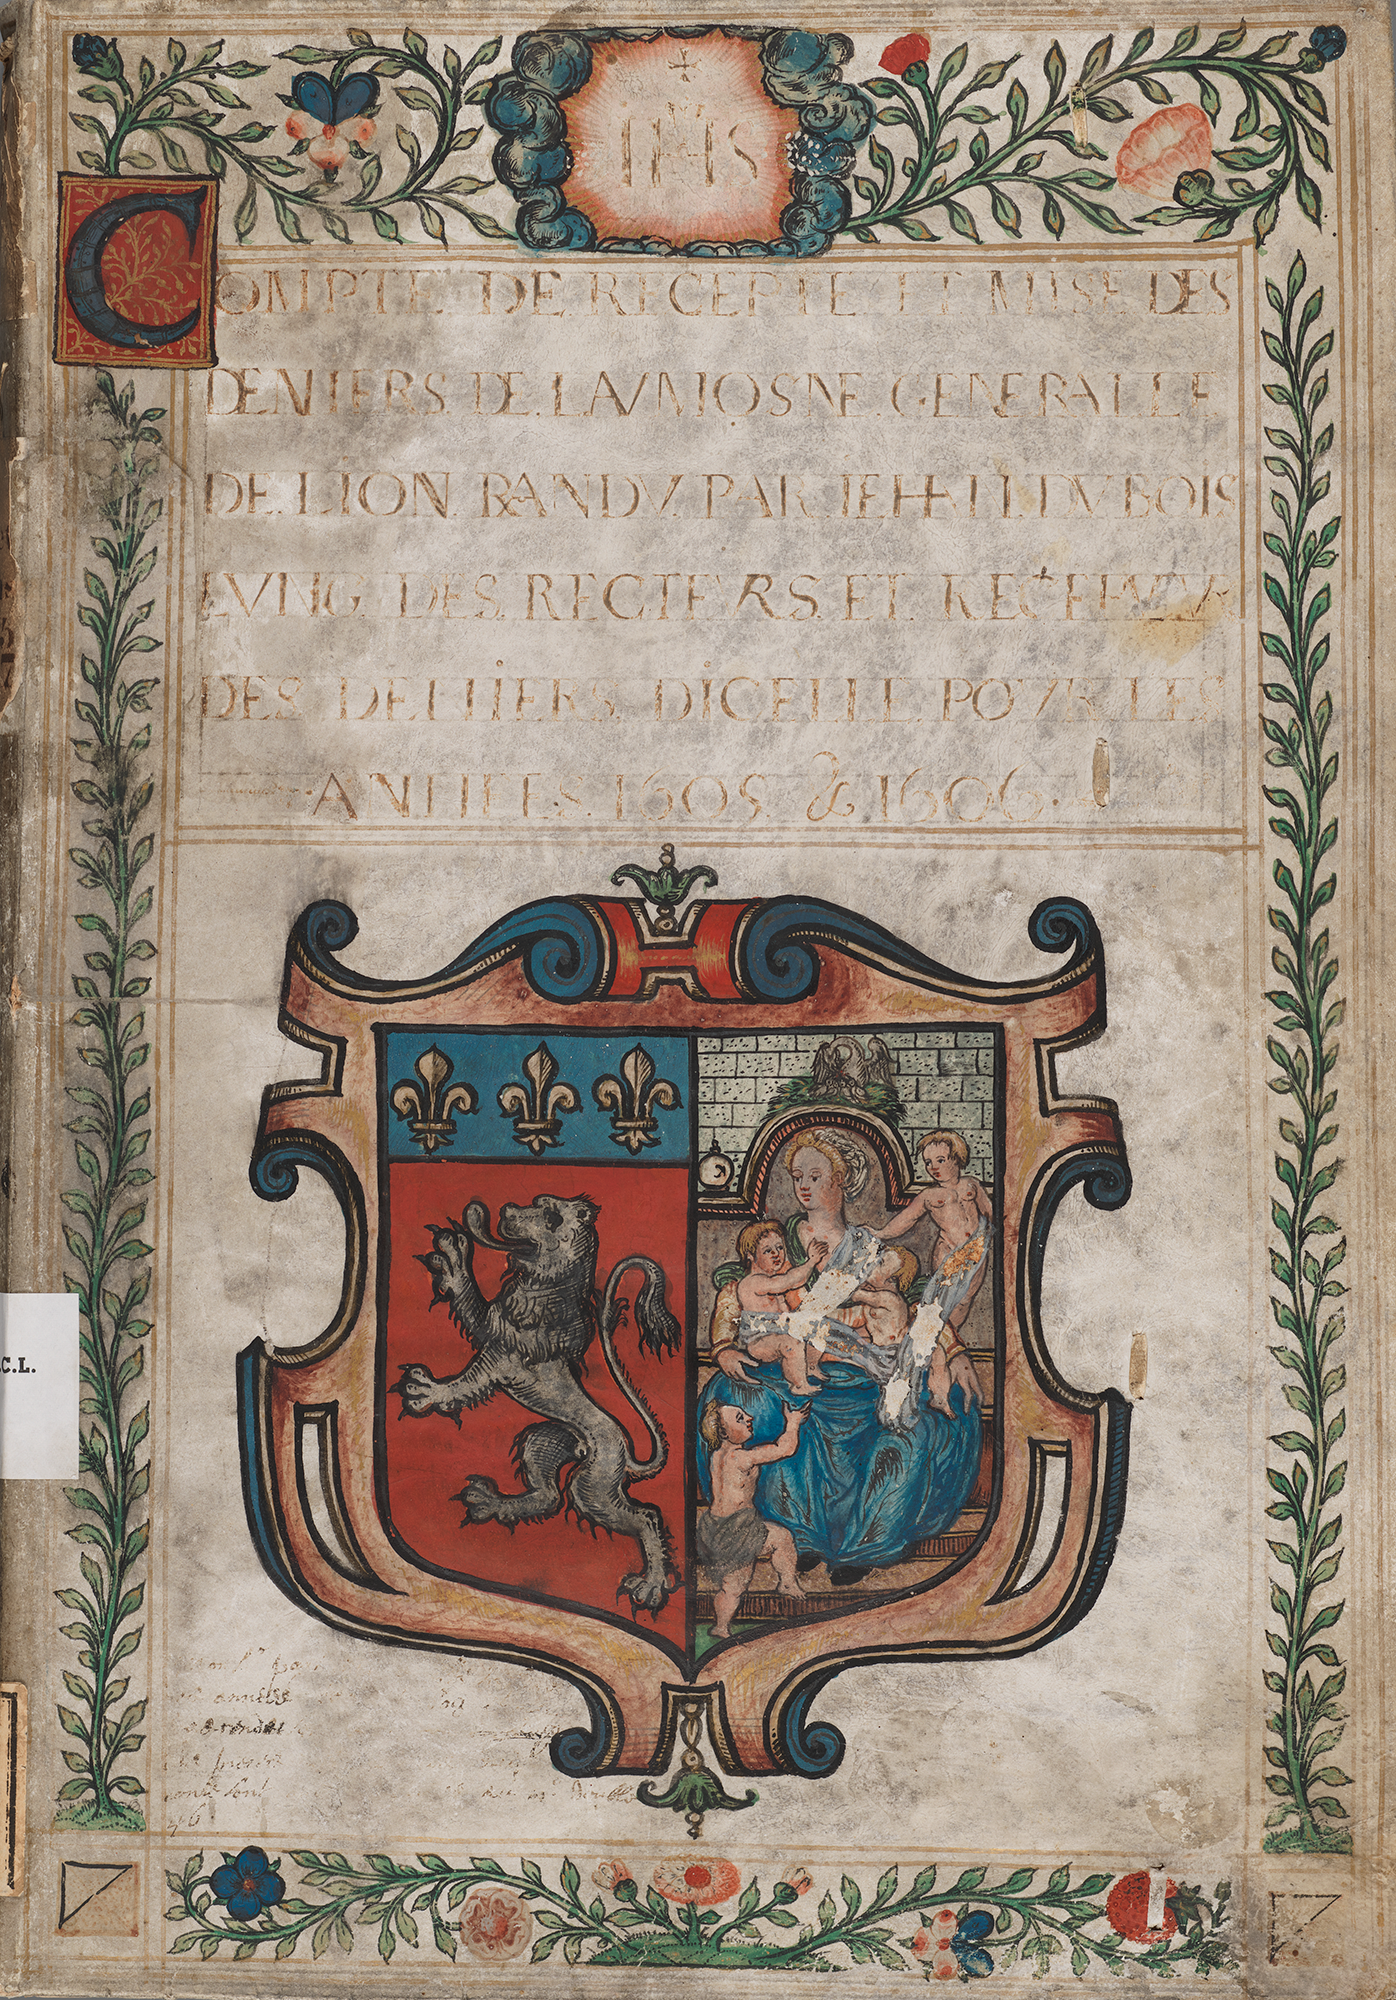 IHS
COMPTE DE RECEPTE ET MISE DES
DENIERS DE LAVMOSNE GENERALLE
DE LION RANDV PAR IEHAN DVBOIS
LVNG DES RECTEVRS ET RECEPVEVR
DES DENIERS DICELLE POVR LES
ANNEES 1605 & 1606
C.L.
annees
46